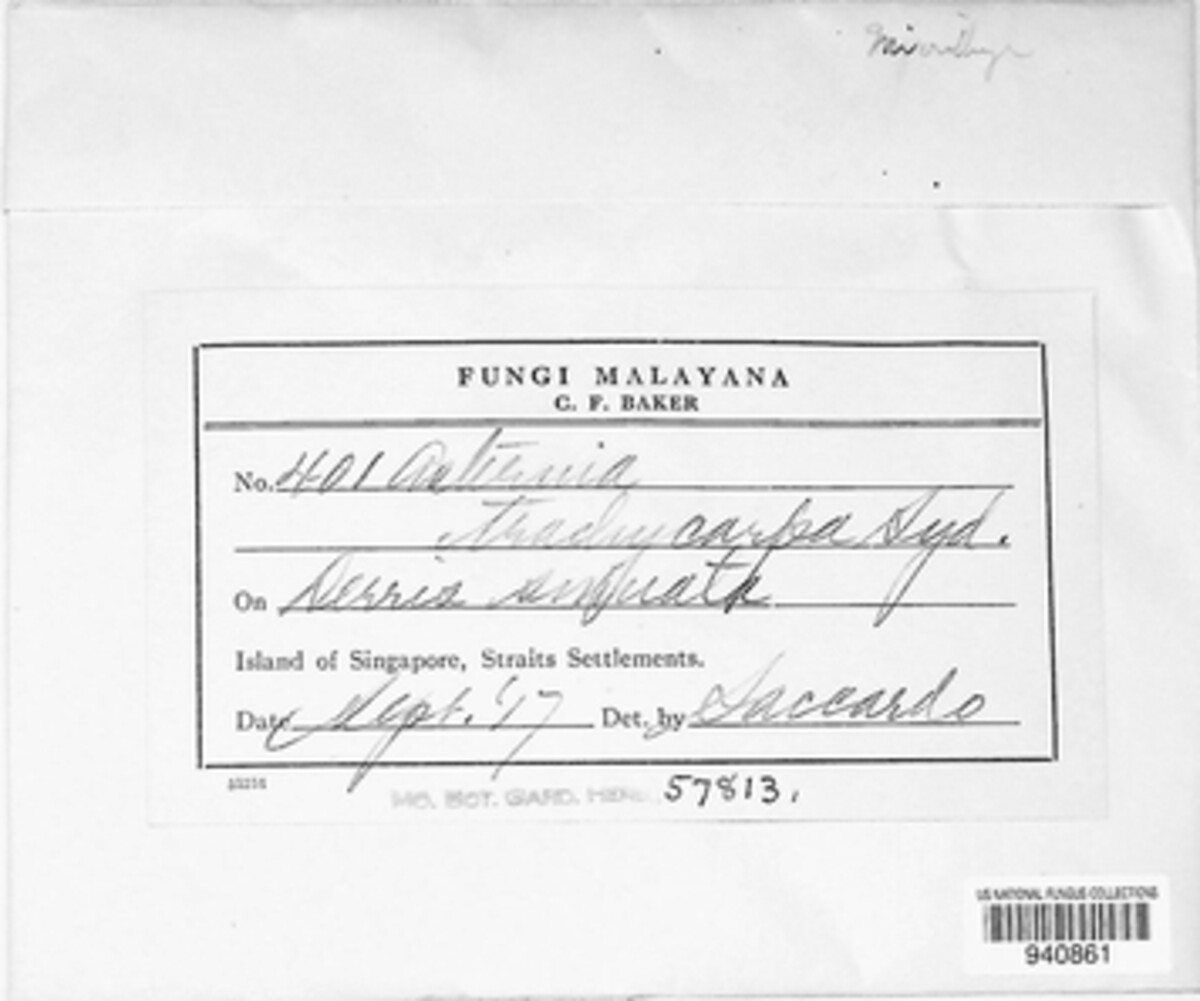 FUNGI MALAYANA
C. F. BAKER
No. 401 Asterina
trachycarpa Syd.
On Derris
Island of Singapore, Straits Settlements.
Date Sept. '17 Det. by Saccardo
MO. BOT. GARD. HERB. 57813.
US NATIONAL FUNGUS COLLECTIONS
940861